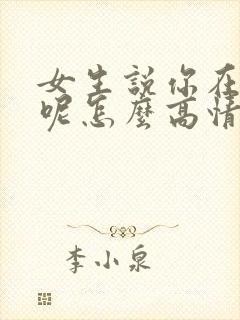 女生説你在
呢怎麼高情
李小泉